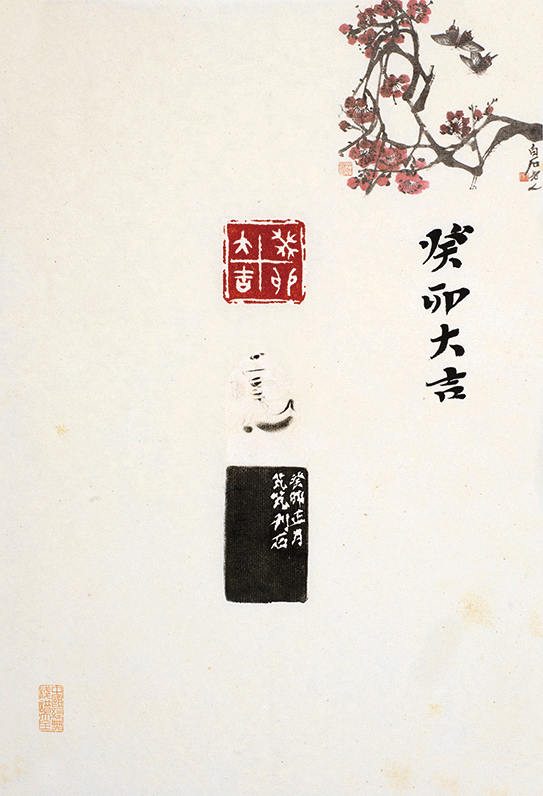 白石老人
癸卯大吉
癸卯
大吉
癸卯正月
刊石